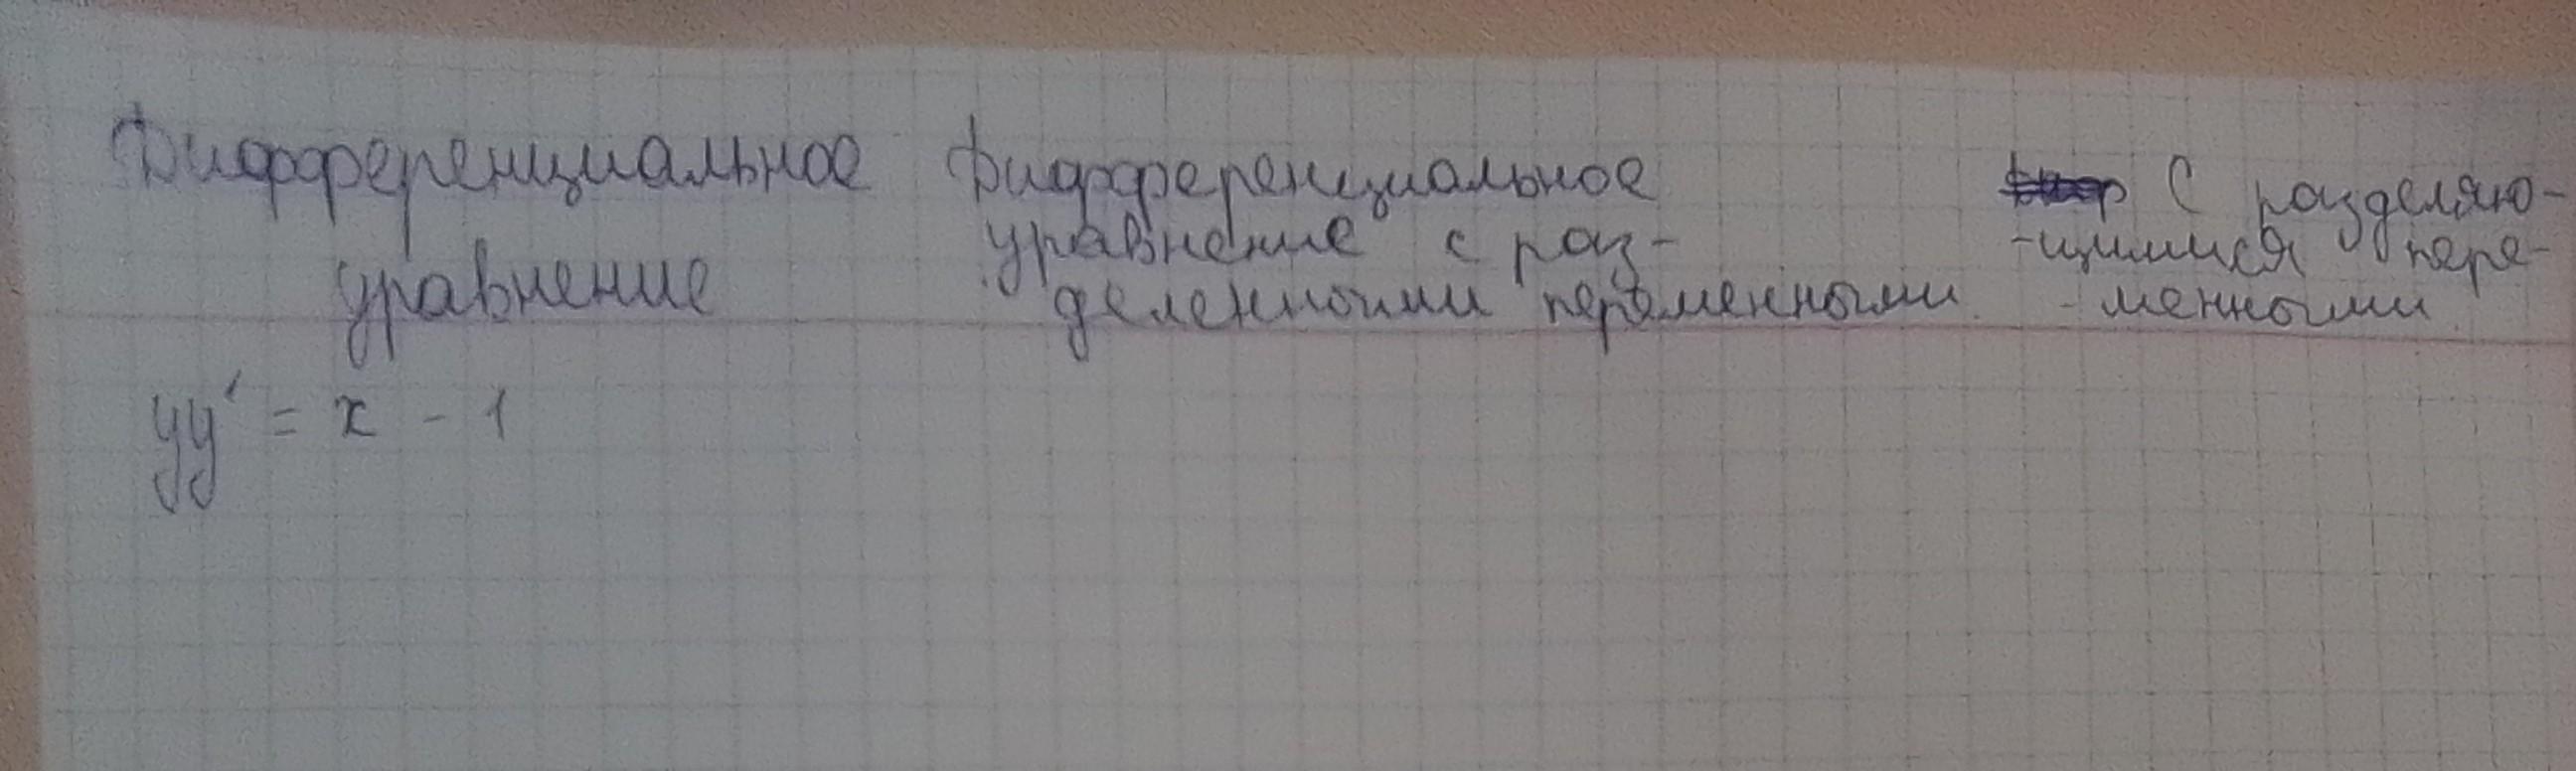 Дифференциальное
уравнение
Дифференциальное
уравнение с раз-
деленными переменными
С разделяю-
-щимися пере-
- менными
yy' = x - 1